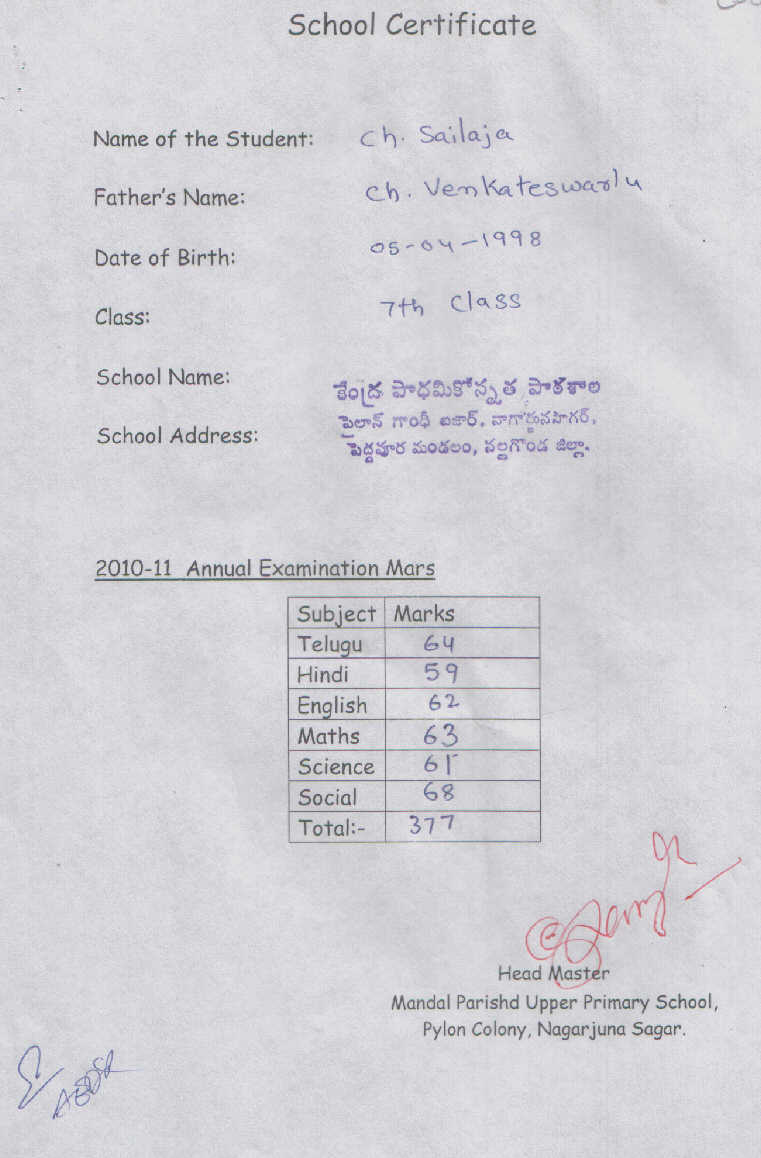 School Certificate
Name of the Student: Ch. Sailaja
Father's Name: Ch. Venkateswarlu
Date of Birth: 05-04-1998
Class: 7th Class
School Name: కేంద్ర పాధమికోన్నత పాఠశాల
పైలాన్ గాంధీ బజార్, నాగార్జునసాగర్,
School Address: పెద్దవూర మండలం, నల్గొండ జిల్లా.
2010-11 Annual Examination Mars
Subject Marks
Telugu 64
Hindi 59
English 62
Maths 63
Science 61
Social 68
Total:- 377
Head Master
Mandal Parishd Upper Primary School,
Pylon Colony, Nagarjuna Sagar.